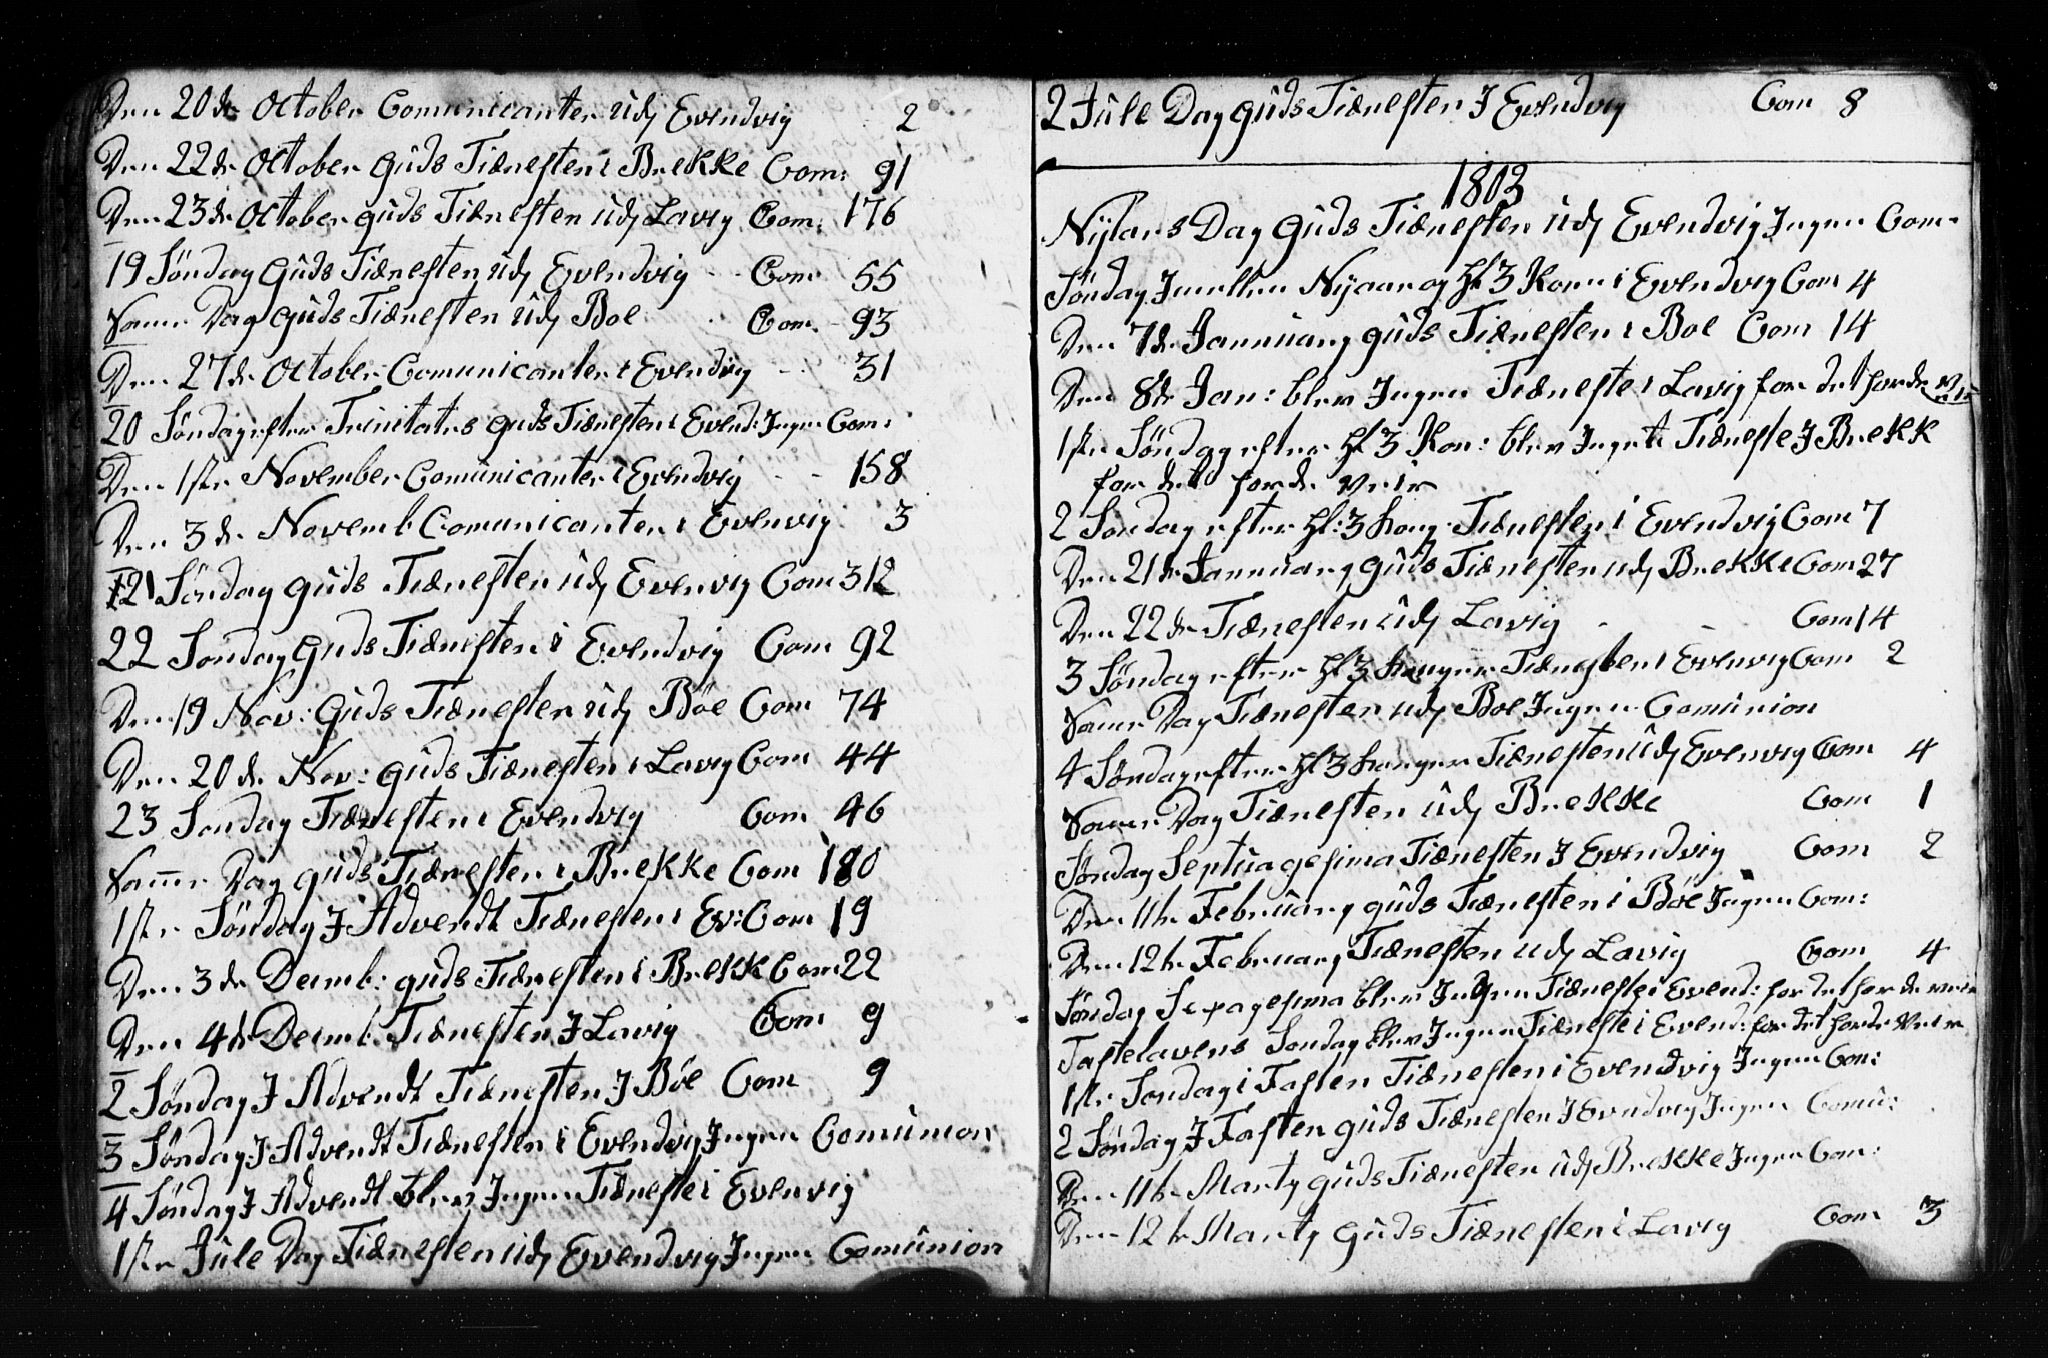 Den 20de October Comunicanter udj Evendvig 2
Den 22de October Guds Tiænesten i Brekke Com: 91
Den 23de October guds Tiænesten udj Lavig Com: 176
19 Søndag Guds Tiænesten udj Evendvig - - Com 55
Samme Dag Guds Tiænesten udj Boe Com. 93
Den 27de October Comunicanter i Evendvig - - 31
20 Søndag efter Trinitatis Guds Tiænesten i Evend: Ingen Com:
Den 1ste November Comunicanter i Evendvig - - 158
Den 3de Novemb Comunicanter i Evenvig 3
21 Søndag guds Tiænesten udj Evenvig Com 312
22 Søndag Guds Tiænesten i Evendvig Com 92
Den 19 Nov: Guds Tiænesten udj Bøe Com 74
Den 20de Nov: Guds Tiænesten i Lavig Com 44
23 Søndag Tiænesten i Evendvig Com 46
Samme Dag guds Tiænesten i Brekke Com 180
1ste Søndag J Advendt Tiænesten i Ev: Com 19
Den 3de Decmb: guds Tiænesten i Brekk Com 22
Den 4de Decmb: Tiænesten J Lavig Com 9
2 Søndag J Advendt Tiænesten J Bøe Com 9
3 Søndag J Advendt Tiænesten i Evendvig Ingen Comunion
4 Søndag J Advendt blev Ingen Tiæneste i Evenvig
1ste Jule Dag Tiænesten udj Evendvig Ingen Comunion
2 Jule Dag guds Tiænesten J Evendvig Com 8
1803
Nytars Dag Guds Tiænesten udj Evendvig Ingen Com-
Søndag Imellem Nyaar og Hl 3 Kon i Evendvig Com 4
Den 7de Januuary guds Tiænesten i Boe Com 14
Den 8de Jan: blev Ingen Tiæneste i Lavig for det haarde Veir
1ste Søndag efter Hl 3 Kon: blev Ingen Tiæneste J Brekk
for det haarde Veir
2 Søndag efter Hl: 3 kong: Tiænesten i Evendvig Com 7
Den 21de Januuary Guds Tiænesten udj Brekke Com 27
Den 22de Tiænesten udj Lavig - - Com 14
3 Søndag efter Hl 3 konger Tiænesten i Evenvig Com 2
Samme Dag Tiænesten udj Boe Ingen Comunion
4 Søndag efter Hl 3 konger Tiænesten udj Evenvig Com 4
Samme Dag Tiænesten udj Brekke Com 1
Søndag Septuagesima Tiænesten J Evendvig Com 2
Den 11te February guds Tiænesten i Bøe Ingen Com:
Den 12te February Tiænesten udj Lavig Com 4
Søndag Sexagesima blev Ingen Tiæneste i Evend: for det haarde veir
Fastelavens Søndag blev Ingen Tiæneste i Evend: for det haarde Veir
1ste Søndag i Fasten Tiænesten i Evendvig Ingen Com:
2 Søndag J Fasten guds Tiænesten J Evndvig Ingen Comu:
Den 11te Marty guds Tiænesten udj Brekke Ingen Com:
Den 12te Marty Guds Tiænesten i Lavig Com 3